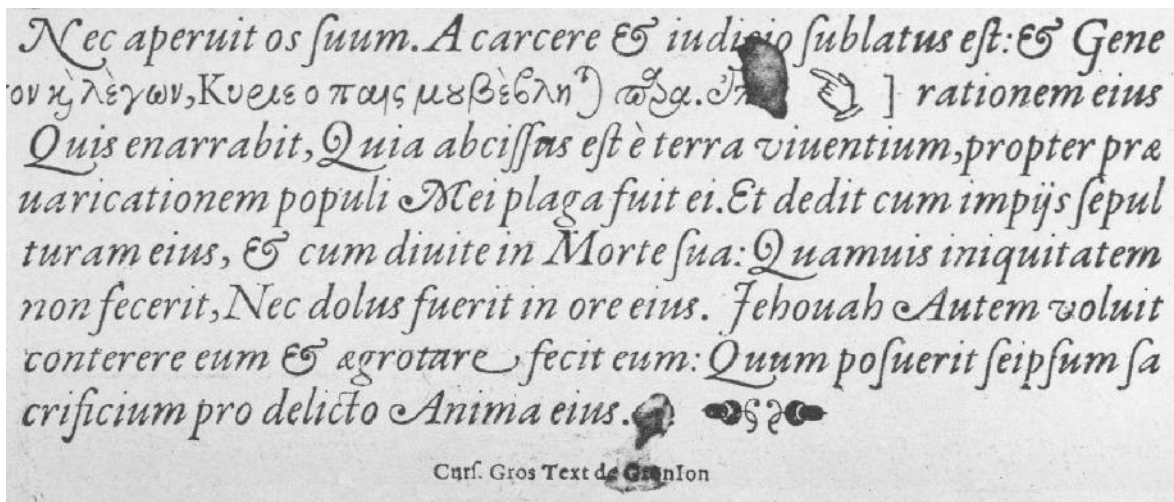 Nec aperuit os ſuum. A carcere & iudicio ſublatus eſt: & Gene
ον κ λὲγων, Κυριε ο παις μου βὲβλη) ωδα. ] rationem eius
Quis enarrabit, Quia abciſſus eſt è terra viuentium, propter præ
uaricationem populi Mei plaga fuit ei. Et dedit cum impijs ſepul
turam eius, & cum diuite in Morte ſua: Quamuis iniquitatem
non fecerit, Nec dolus fuerit in ore eius. Jehouah Autem voluit
conterere eum & ægrotare fecit eum: Quum poſuerit ſeipſum ſa
crificium pro delicto Anima eius.
Curſ. Gros Text de GranIon